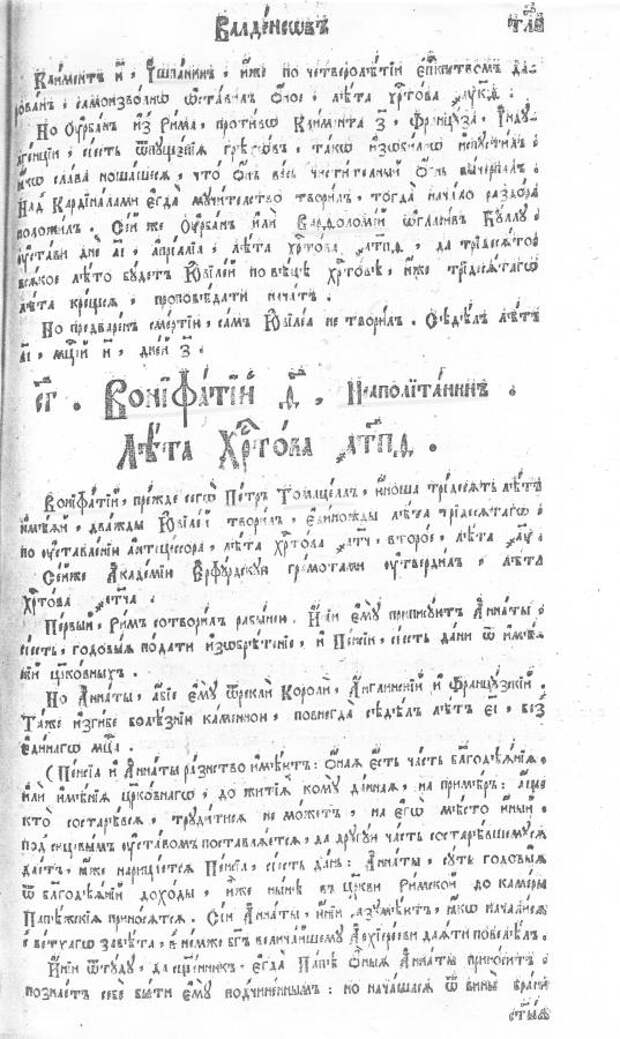 Валде́нсѡвъ тл҃в
Климентъ и҃, Гишпанинъ, иже по четверолѣтїи епⷭ҇кпствомъ да-
рованъ, самоизволнѡ ѡ҆ставилъ ѻ҆ное, лѣта хрⷭ҇това ҂аук҃д.
Но Оурбанъ и҆з̾ Рима, противѡ Климента з҃, Француза, Їндꙋ-
лгенцїи, сїесть ѿпꙋщенїя грѣхѡвъ, такѡ изѡбилнѡ испꙋстилъ,
ꙗкѡ слава ношашеся, что ѻ҆нъ весь чистителный ѻ҆гнь вычерпалъ.
Над Кардїналами егда мꙋчителство творилъ, тогда начало раздора
положилъ. Сей же Оурбанъ или Варѳоломїй ѡгласивъ Бꙋллꙋ,
оустави дне а҃і, апрїллїа, лѣта хрⷭ҇това ҂атп҃ѳ, да трїдесятое
всякое лѣто бꙋдетъ Юбїлей по вѣцѣ хрⷭ҇товѣ, иже трїдесятагѡ
лѣта крещься, проповѣдати начатъ.
Но предваренъ смертїю, самъ Юбїлеа не творилъ. Сѣдѣлъ лѣтъ
а҃і, мцⷭ҇ей и҃, дней з҃.
с҃г. Вонїфатїй ѳ҃, Неаполїтанинъ.
Лѣта Хрⷭ҇това ҂атп҃ѳ.
Вонїфатїй, прежде сегѡ Петръ Томацеллъ, юноша трїдесять лѣтъ
имѣяй, дважды Юбїлей творилъ, единожды лѣта трїдесятагѡ
по оуставленїи антецессора, лѣта хрⷭ҇това ҂атч҃, второе, лѣта ҂аꙋ҃.
Сейже Академїи Ерфꙋрдскꙋю грамотами оутвердилъ, лѣта
хрⷭ҇това ҂атч҃а.
Первый, Римъ сотворилъ рабынею. И҆нїи емꙋ припишꙋтъ Аннаты,
сїесть, годовыя подати изѡбрѣтенїе, и Пенсїи, сїесть дани ѿ имѣ-
нїй црⷪ҇ковныхъ.
Но Аннаты, абїе емꙋ ѿрекли Короли, Англинский и Францꙋзский.
Таже изгибе болѣзнїю каменною, повнегда сѣдѣлъ лѣтъ е҃і, без
единагѡ мцⷭ҇а.
(Пенсїа и Аннаты разнство имѣютъ: ѻная есть часть благодѣянїя,
или имѣнїя црⷪ҇ковнагѡ, до житїя комꙋ данная, на примѣръ: аще
кто состарѣвся, трꙋдитися не можетъ, на егѡ мѣсто иный,
под сицевымъ оуставомъ поставляется, да дрꙋгꙋю часть состарѣвшемꙋся
даетъ, ꙗже нарицается Пенсїа, сїесть дань: Аннаты, сꙋть годовыя
ѿ благодѣянїй доходы, иже нынѣ въ црⷪ҇кви Римской до камеры
Папѣжскїя приносятся. Сїи Аннаты, инїи разꙋмѣютъ, ꙗкѡ начались
с ветхагѡ завѣта, в немже бг҃ъ величайшемꙋ Архїереови даяти повелѣлъ.
Инїи ѿтꙋдꙋ, да сщⷭ҇енникъ, егда Папѣ ѻныя Аннаты приноситъ,
познаетъ себе быти емꙋ подчиненнымъ: но начашася ѿ вины брани
ст҃ыя